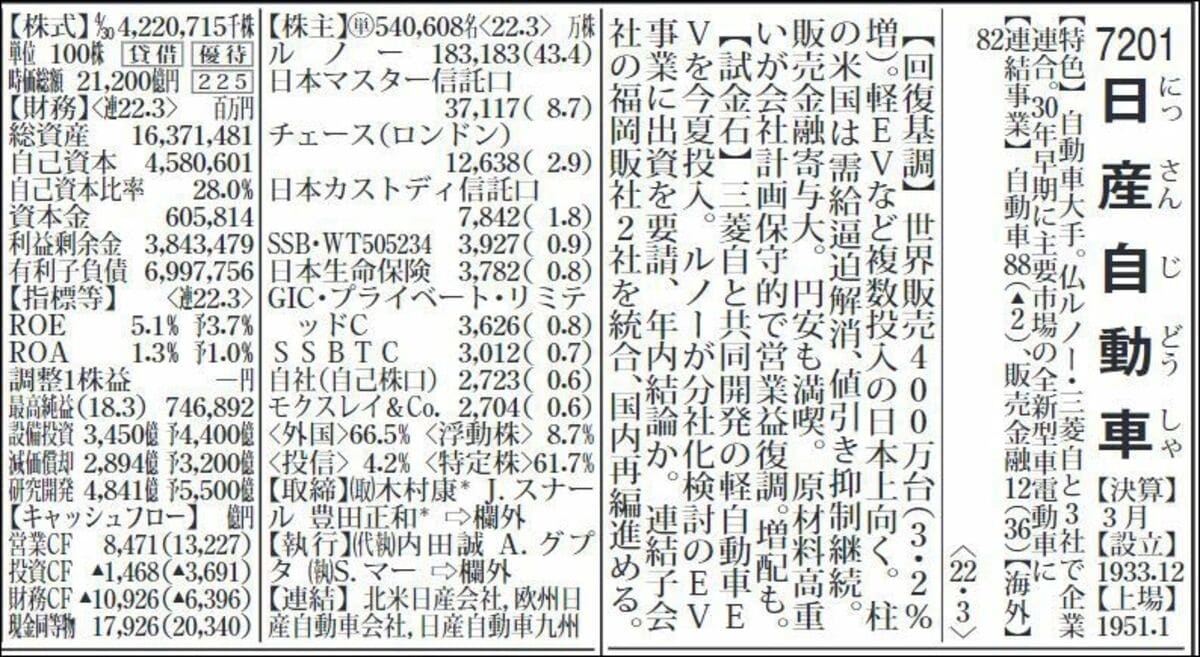 7201
日産自動車
にっさんじどうしゃ
【決算】
3月
【設立】
1933.12
【上場】
1951.1
【特色】自動車大手。仏ルノー・三菱自と3社で企業
連合。30年早期に主要市場の全新型車電動車に
【連結事業】自動車88(▲2)、販売金融12(36)【海外】
82
〈22・3〉
【回復基調】世界販売400万台(3・2%
増)。軽EVなど複数投入の日本上向く。柱
の米国は需給逼迫解消、値引き抑制継続。
販売金融寄与大。円安も満喫。原材料高重
いが会社計画保守的で営業益復調。増配も。
【試金石】三菱自と共同開発の軽自動車E
Vを今夏投入。ルノーが分社化検討のEV
事業に出資を要請、年内結論か。連結子会
社の福岡販社2社を統合、国内再編進める。
【株式】4/30 4,220,715千株
単位 100株 貸借 優待
時価総額 21,200億円 225
【財務】〈連22.3〉 百万円
総資産 16,371,481
自己資本 4,580,601
自己資本比率 28.0%
資本金 605,814
利益剰余金 3,843,479
有利子負債 6,997,756
【指標等】 〈連22.3〉
ROE 5.1% 予3.7%
ROA 1.3% 予1.0%
調整1株益 ―円
最高純益(18.3) 746,892
設備投資 3,450億 予4,400億
減価償却 2,894億 予3,200億
研究開発 4,841億 予5,500億
【キャッシュフロー】 億円
営業CF 8,471(13,227)
投資CF ▲1,468(▲3,691)
財務CF ▲10,926(▲6,396)
現金同等物 17,926(20,340)
【株主】㊥540,608名〈22.3〉 万株
ルノー 183,183(43.4)
日本マスター信託口
37,117( 8.7)
チェース(ロンドン)
12,638( 2.9)
日本カストディ信託口
7,842( 1.8)
SSB・WT505234 3,927( 0.9)
日本生命保険 3,782( 0.8)
GIC・プライベート・リミテ
ッドC 3,626( 0.8)
SSBTC 3,012( 0.7)
自社(自己株口) 2,723( 0.6)
モクスレイ&Co. 2,704( 0.6)
〈外国〉66.5% 〈浮動株〉 8.7%
〈投信〉 4.2% 〈特定株〉61.7%
【取締】(取)木村康* J.スナー
ル 豊田正和* ⇨欄外
【執行】(代執)内田誠 A.グプ
タ (執)S.マー ⇨欄外
【連結】 北米日産会社,欧州日
産自動車会社,日産自動車九州